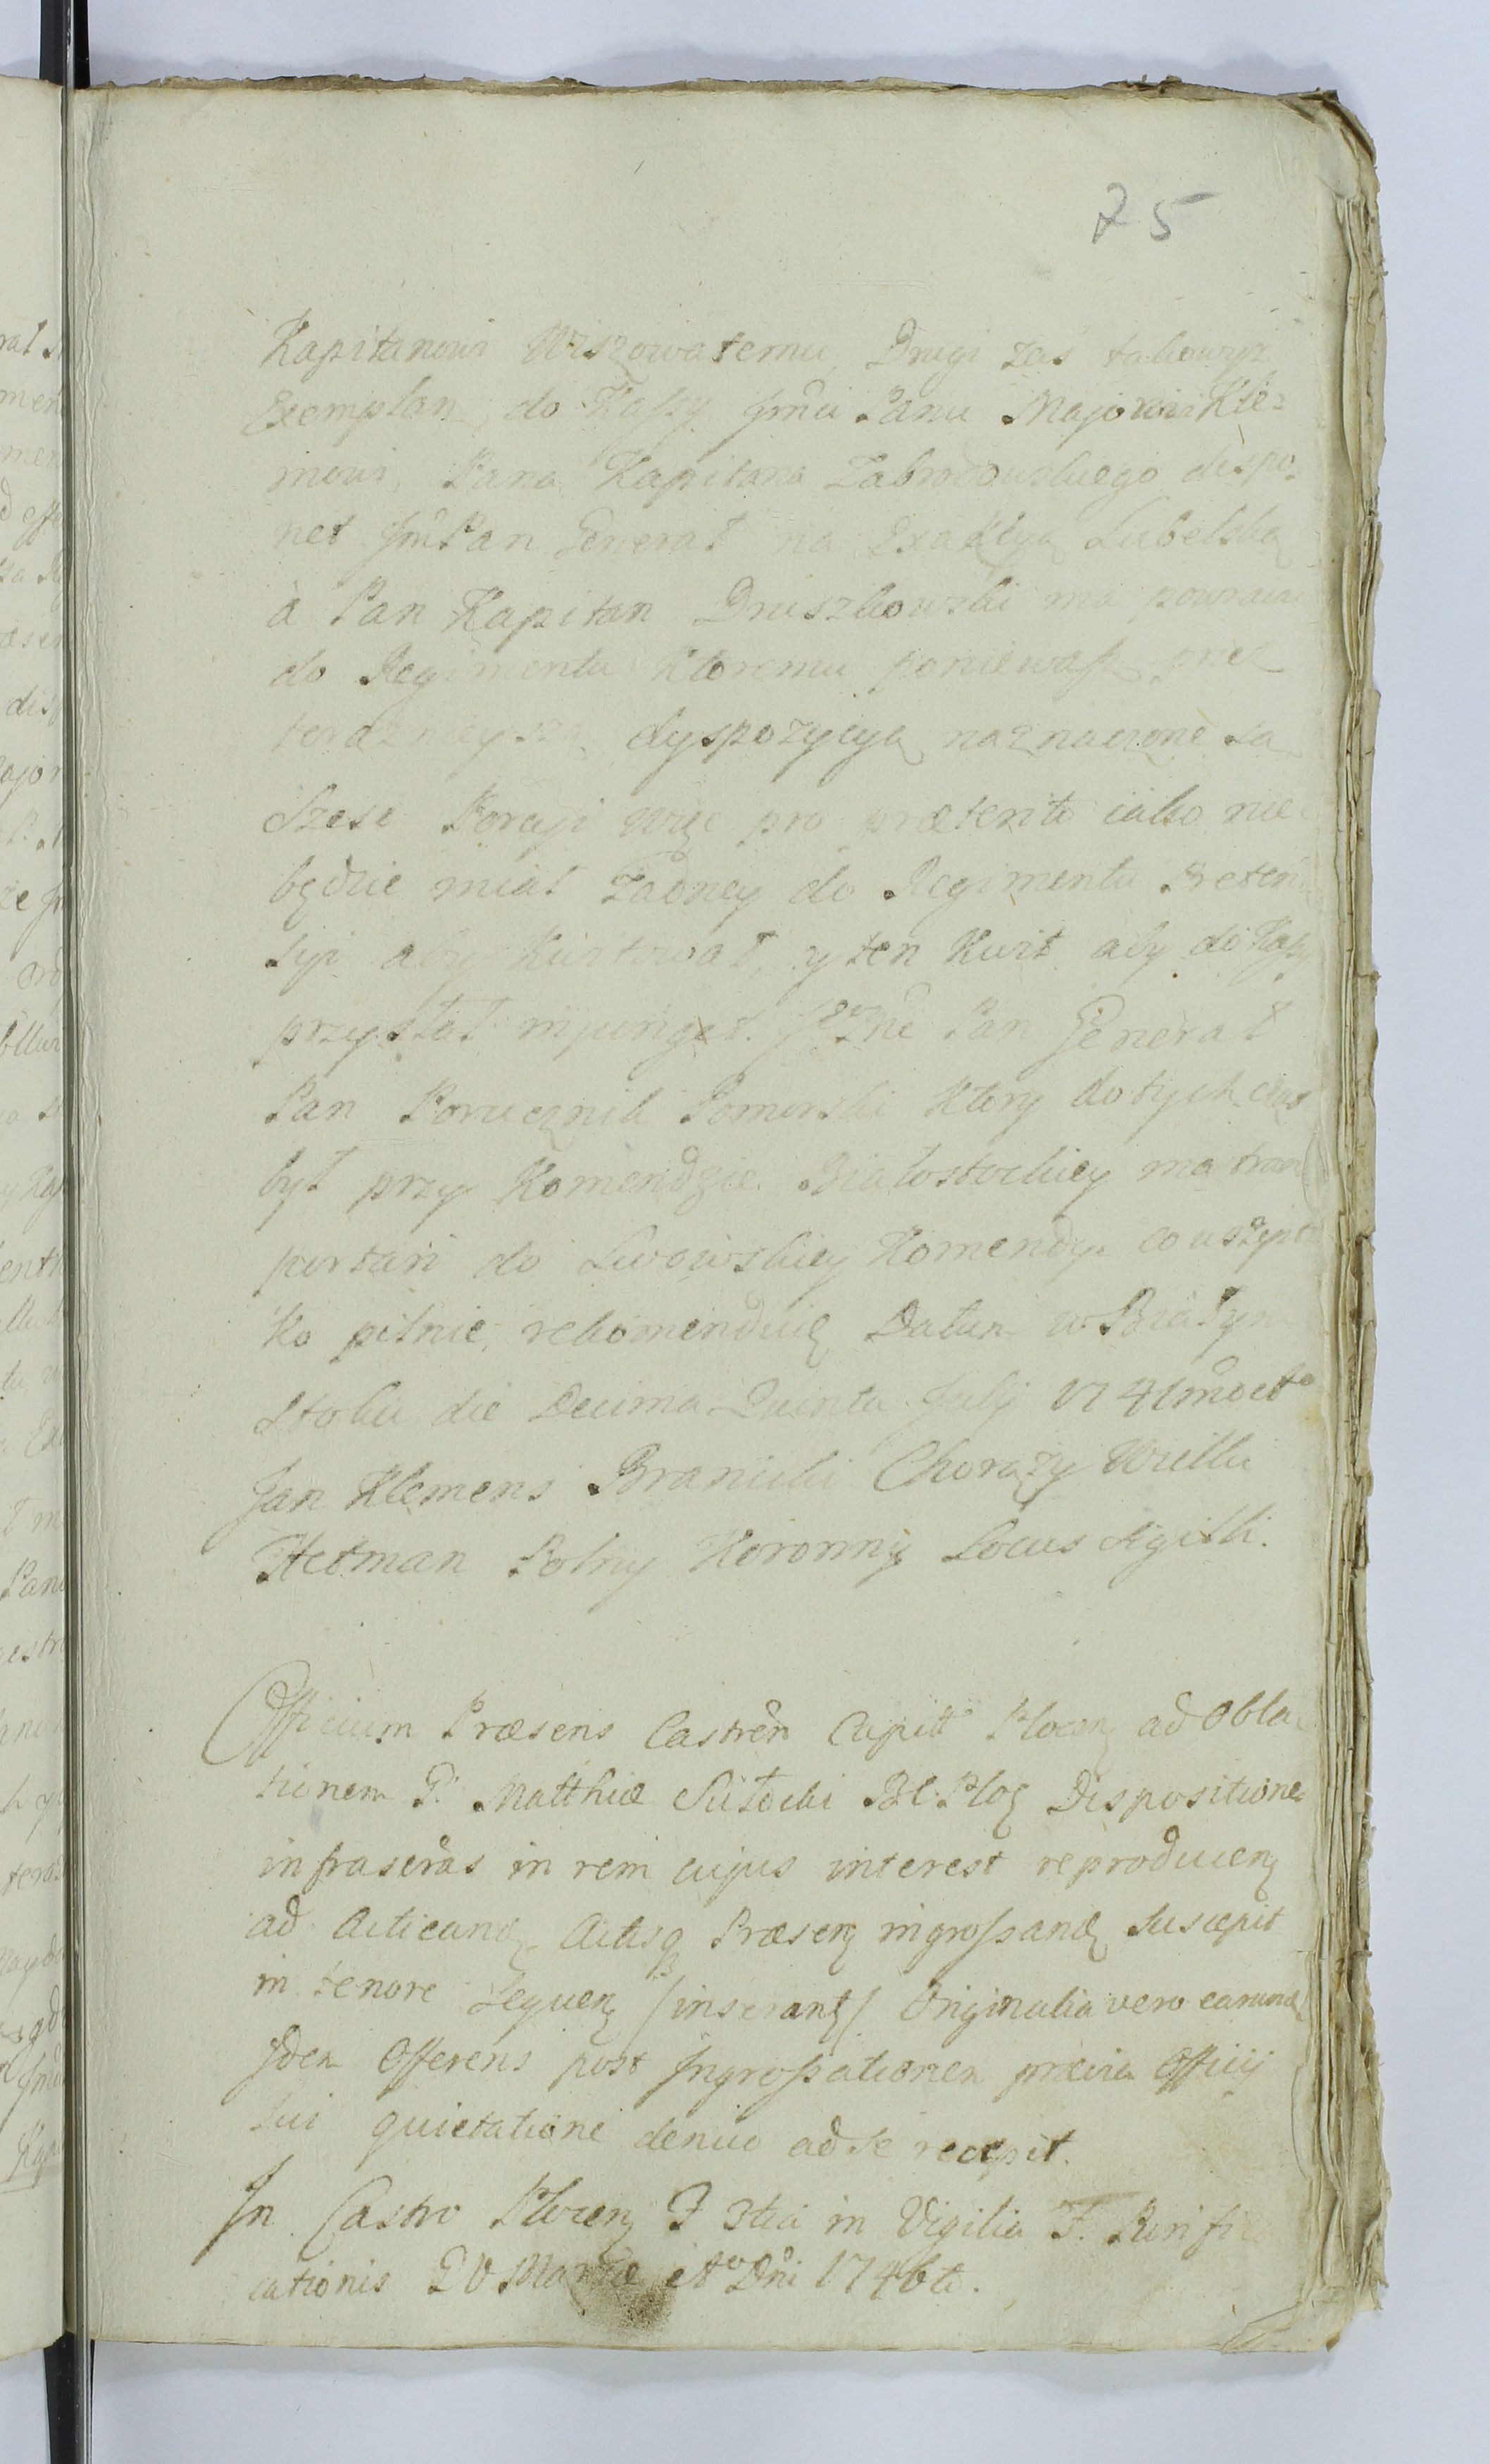 75
Kapitanowi Wiszowatemu, Drugi zas takowyz
Exemplarz do Kassy Jmci Panu Majorowi Kle=
mowi, Pana Kapitana Zabrodowskiego dispo=
net Jmć Pan Generał na Exakcyą Lubelską
à Pan Kapitan Druszkowski ma powracac
do Regimentu ktoremu poniewasz przez
teraznieyszą dyspozycyą naznaczone są
Szesc Porcyji więc pro prætento iako nie
będzie miał żadney do Regimentu Preten=
syi aby kwitował, y ten kwit aby do Kassy
przysłał injunget Jmć Pan Generał
Pan Porucznik Pomorski który dotych czas
był przy Komendzie Białostockiey ma trans
portari do Lwowskiey Komendy co wszyst
ko pilnie rekomenduię Datum w Białym
Stoku die Decima Quinta Julij 1741mo et
Jan Klemens Branicki Chorąży Wielki
Hetman Polny Koronny Locus Sigilli.
Officium Præsens Castren Capitt Plocen ad Obla=
tionem G. Matthiæ Sutocki B.C. Ploc Dispositiones
infrascras in rem cujus interest reproducen
ad Acticand Actisq Præsen ingrossand Suscepit
in tenore Sequen /inserant/ Originalia vero earund
Idem Offerens post Ingrossationem prævia Officij
sui quietatione denuo ad se recepit.
In Castro Plocen F 3tia in Vigilia F. Purifi
cationis B V Mariæ A Dni 1746to.